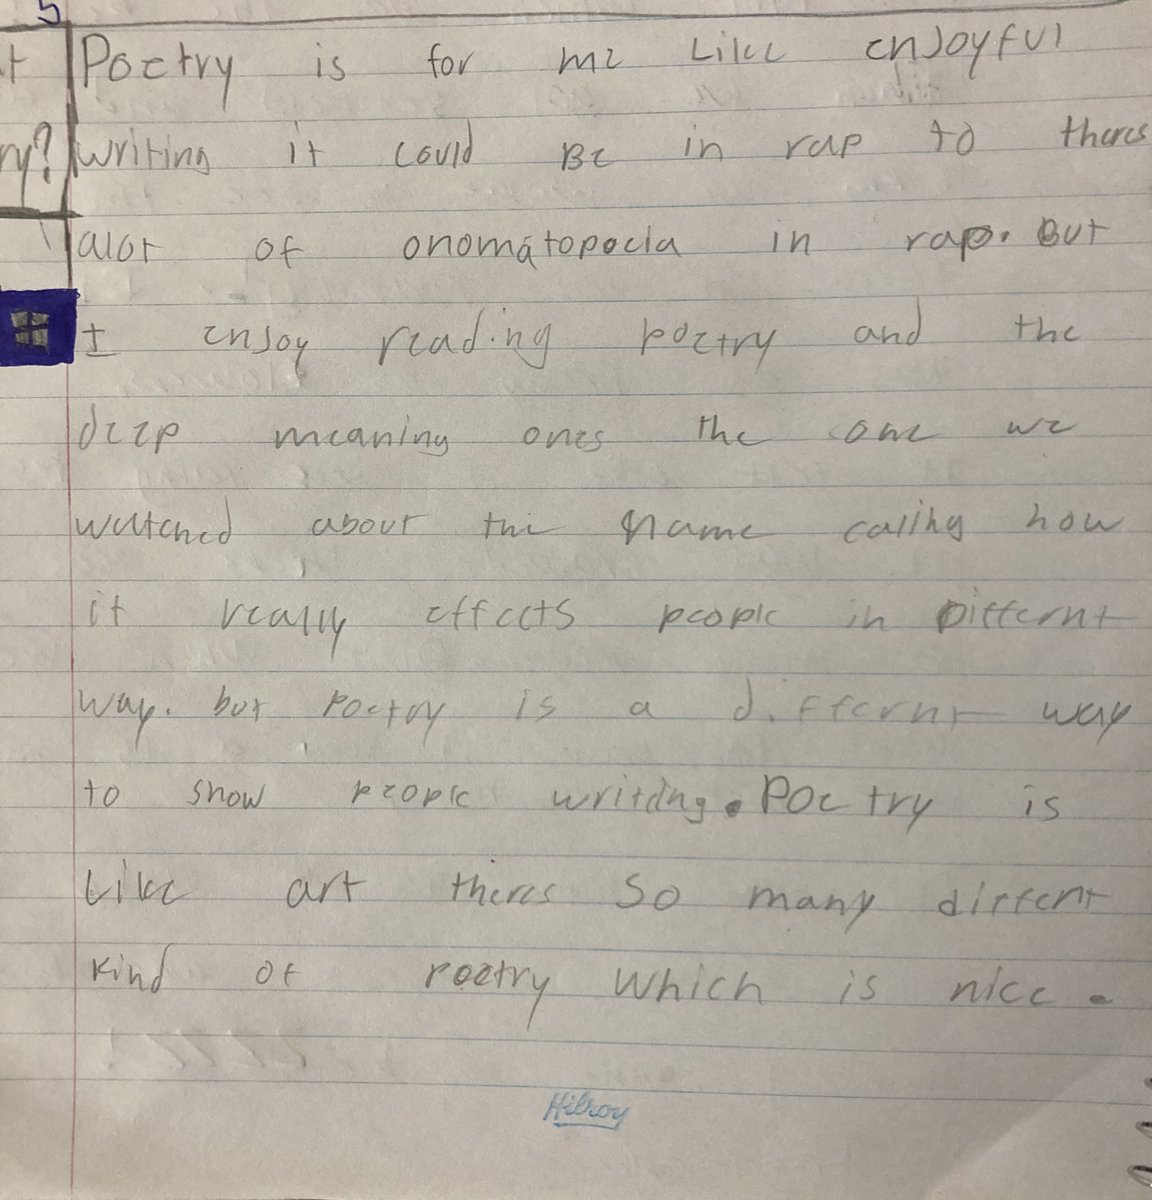 5
t Poetry is for me Like enjoyful
ry? writing it could Be in rap to theres
alot of onomatopoeia in rap. But
I enjoy reading poetry and the
deep meaning ones the one we
watched about the name calling how
it really effects people in Differnt
way. but Poetry is a differnt way
to show people writing. Poetry is
Like art theres So many differnt
kind of poetry which is nice.
Hilroy